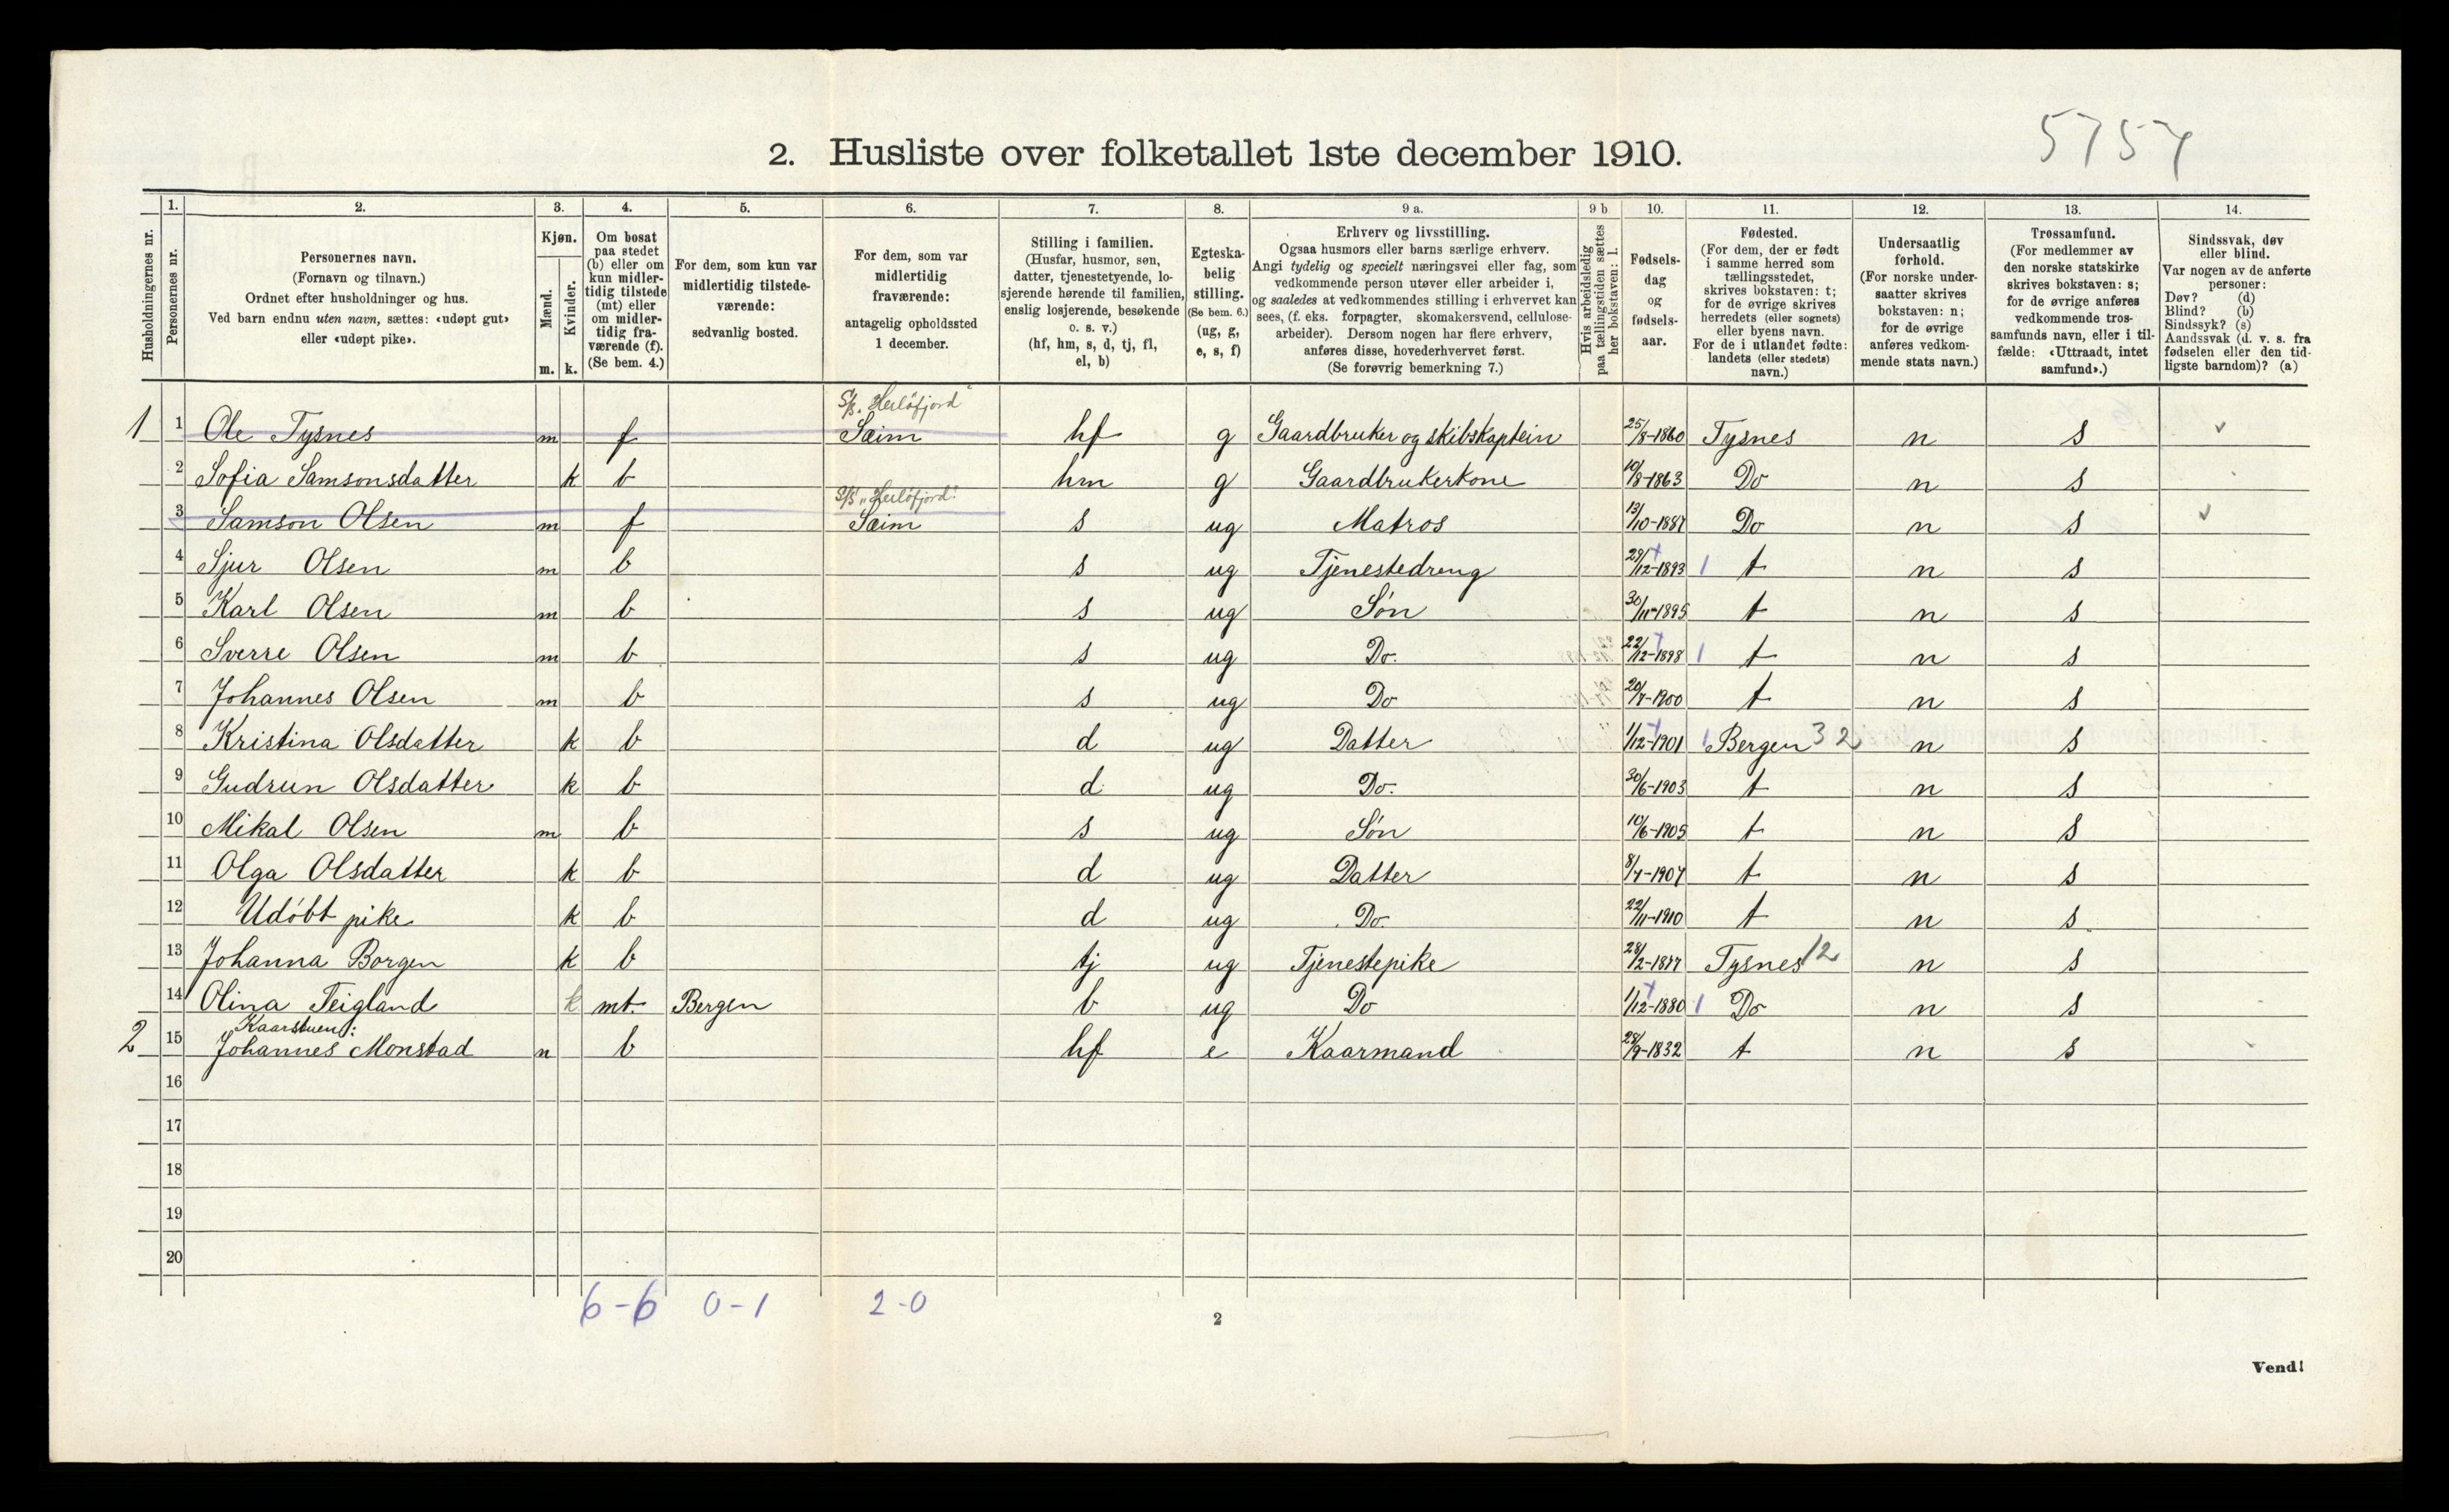 5754
2. Husliste over folketallet 1ste december 1910.
Husholdningernes nr.
1.
Personernes nr.
2.
Personernes navn.
(Fornavn og tilnavn.)
Ordnet efter husholdninger og hus.
Ved barn endnu uten navn, sættes: «udøpt gut»
eller «udøpt pike».
3.
Kjøn.
Mænd.
Kvinder.
m. k.
4.
Om bosat
paa stedet
(b) eller om
kun midler-
tidig tilstede
(mt) eller
om midler-
tidig fra-
værende (f).
(Se bem. 4.)
5.
For dem, som kun var
midlertidig tilstede-
værende:
sedvanlig bosted.
6.
For dem, som var
midlertidig
fraværende:
antagelig opholdssted
1 december.
7.
Stilling i familien.
(Husfar, husmor, søn,
datter, tjenestetyende, lo-
sjerende hørende til familien,
enslig losjerende, besøkende
o. s. v.)
(hf, hm, s, d, tj, fl,
el, b)
8.
Egteska-
belig
stilling.
(Se bem. 6.)
(ug, g,
e, s, f)
9 a.
Erhverv og livsstilling.
Ogsaa husmors eller barns særlige erhverv.
Angi tydelig og specielt næringsvei eller fag, som
vedkommende person utøver eller arbeider i,
og saaledes at vedkommendes stilling i erhvervet kan
sees, (f. eks. forpagter, skomakersvend, cellulose-
arbeider). Dersom nogen har flere erhverv,
anføres disse, hovederhvervet først.
(Se forøvrig bemerkning 7.)
9 b
Hvis arbeidsledig
paa tællingstiden sættes
her bokstaven: l.
10.
Fødsels-
dag
og
fødsels-
aar.
11.
Fødested.
(For dem, der er født
i samme herred som
tællingsstedet,
skrives bokstaven: t;
for de øvrige skrives
herredets (eller sognets)
eller byens navn.
For de i utlandet fødte:
landets (eller stedets)
navn.)
12.
Undersaatlig
forhold.
(For norske under-
saatter skrives
bokstaven: n;
for de øvrige
anføres vedkom-
mende stats navn.)
13.
Trossamfund.
(For medlemmer av
den norske statskirke
skrives bokstaven: s;
for de øvrige anføres
vedkommende tros-
samfunds navn, eller i til-
fælde: «Uttraadt, intet
samfund».)
14.
Sindssvak, døv
eller blind.
Var nogen av de anførte
personer:
Døv? (d)
Blind? (b)
Sindssyk? (s)
Aandssvak (d. v. s. fra
fødselen eller den tid-
ligste barndom)? (a)
S/S. "Herlöfjord"
1 1 Ole Tysnes m f Sæim hf g Gaardbruker og skibskaptein 25/8-1860 Tysnes n s v
2 Sofia Samsonsdatter k b hm g Gaardbrukerkone 10/8-1863 Do n s
S/S "Herlöfjord"
3 Samson Olsen m f Sæim s ug Matros 13/10-1887 Do n s v
4 Sjur Olsen m b s ug Tjenestedreng 29/12-1893 1 t n s
5 Karl Olsen m b s ug Sön 30/11-1895 t n s
6 Sverre Olsen m b s ug Do. 22/12-1898 1 t n s
7 Johannes Olsen m b s ug Do 20/7-1900 t n s
8 Kristina Olsdatter k b d ug Datter 1/12-1901 1 Bergen 32 n s
9 Gudrun Olsdatter k b d ug Do. 30/6-1903 t n s
10 Mikal Olsen m b s ug Sön 10/6-1905 t n s
11 Olga Olsdatter k b d ug Datter 8/7-1907 t n s
12 Udöbt pike k b d ug Do. 22/11-1910 t n s
13 Johanna Borgen k b tj ug Tjenestepike 28/2-1877 Tysnes 12 n s
14 Olina Teigland k mt. Bergen b ug Do 1/12-1880 1 Do n s
Kaarstuen:
2 15 Johannes Monstad m b hf e Kaarmand 28/9-1832 t n s
16
17
18
19
20
6-6 0-1 2-0
2
Vend!